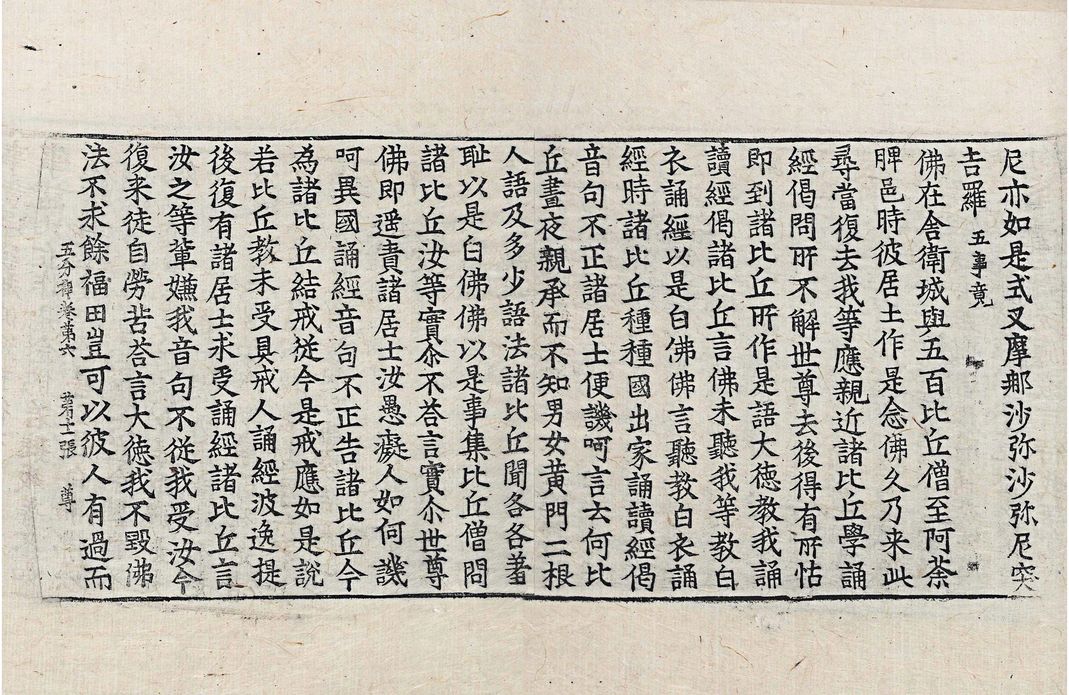 尼亦如是式叉摩那沙弥沙弥尼突
吉羅 五事竟
佛在舍衛城與五百比丘僧至阿荼
脾邑時彼居士作是念佛久乃来此
尋當復去我等應親近諸比丘學誦
經偈問所不解世尊去後得有所怙
即到諸比丘所作是語大徳教我誦
讀經偈諸比丘言佛未聽我等教白
衣誦經以是白佛佛言聽教白衣誦
經時諸比丘種種國出家誦讀經偈
音句不正諸居士便譏呵言云何比
丘晝夜親承而不知男女黄門二根
人語及多少語法諸比丘聞各各羞
耻以是白佛佛以是事集比丘僧問
諸比丘汝等實尒不荅言實尒世尊
佛即遥責諸居士汝愚癡人如何譏
呵異國誦經音句不正告諸比丘今
為諸比丘結戒従今是戒應如是說
若比丘教未受具戒人誦經波逸提
後復有諸居士求受誦經諸比丘言
汝之等輩嫌我音句不従我受汝今
復来徒自勞苦荅言大徳我不毀佛
法不求餘福田豈可以彼人有過而
五分律卷第六 第十一張 尊